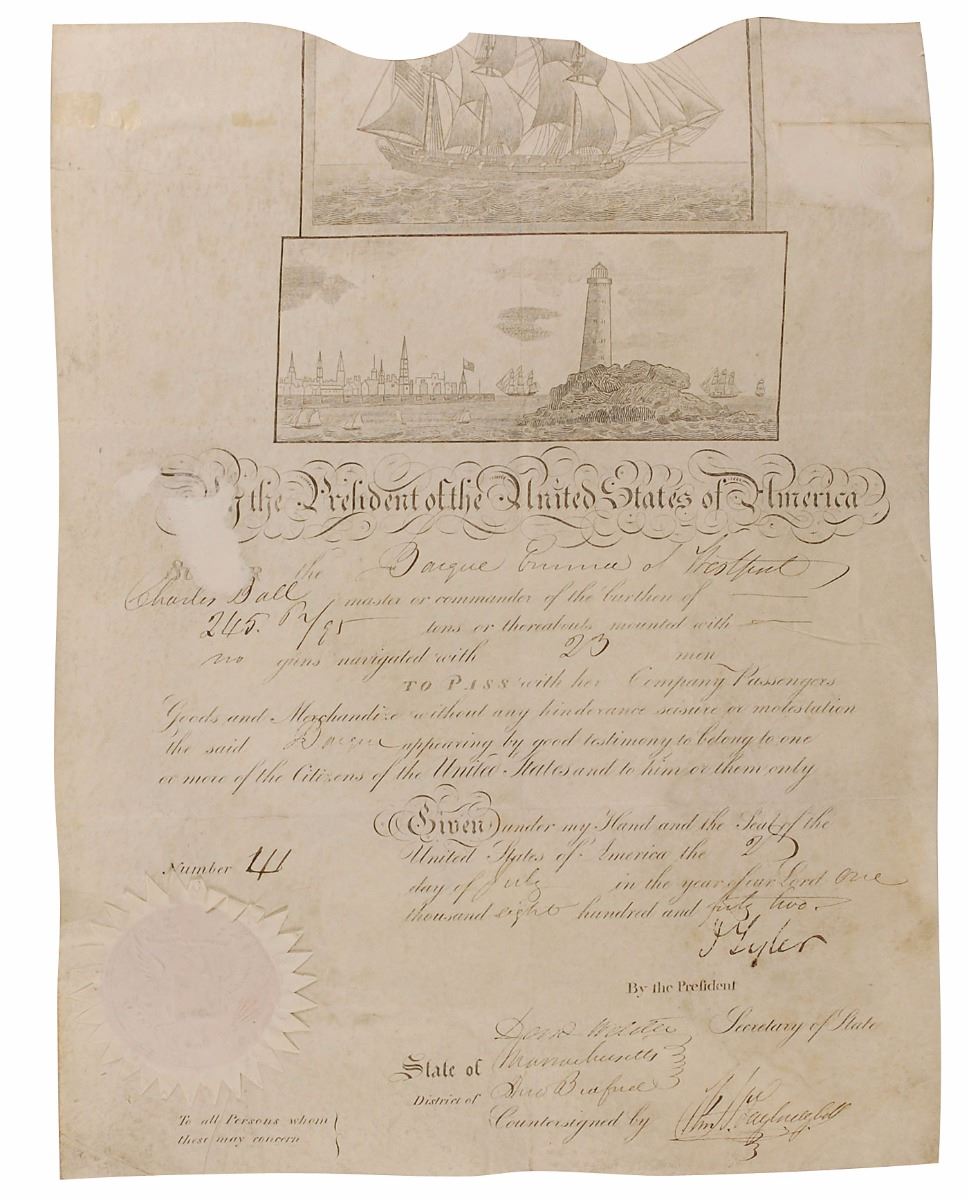 By the President of the United States of America
the Barque Emma of Westport
Charles Ball master or commander of the burthen of
245. /95 tons or thereabouts mounted with
no guns navigated with 23 men
TO PASS with her Company Passengers
Goods and Merchandize without any hinderance seisure or molestation
the said Barque appearing by good testimony to belong to one
or more of the Citizens of the United States and to him or them only
Given under my Hand and the Seal of the
United States of America the
Number 41
day of July in the year of our Lord One
thousand eight hundred and fifty two.
J Tyler
By the President
Danl Webster Secretary of State
State of Massachusetts
District of New Bedford
Countersigned by
To all Persons whom
these may concern